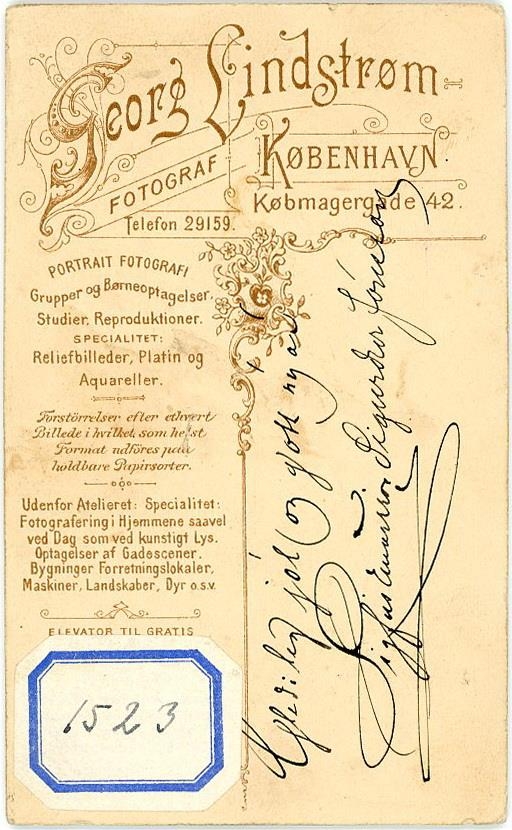 Georg Lindstrøm
FOTOGRAF
KØBENHAVN.
Købmagergade 42.
Telefon 29159.
PORTRAIT FOTOGRAFI
Grupper og Børneoptagelser.
Studier. Reproduktioner.
SPECIALITET:
Reliefbilleder, Platin og
Aquareller.
Forstörrelser efter ethvert
Billede i hvilket som helst
Format udföres paa
holdbare Papirsorter.
Udenfor Atelieret: Specialitet:
Fotografering i Hjemmene saavel
ved Dag som ved kunstigt Lys.
Optagelser af Gadescener.
Bygninger Forretningslokaler,
Maskiner, Landskaber, Dyr o.s.v.
ELEVATOR TIL GRATIS
1523
Gleðileg jól og gott nyár
Sigfús Einarsson Sigurður Jónsson